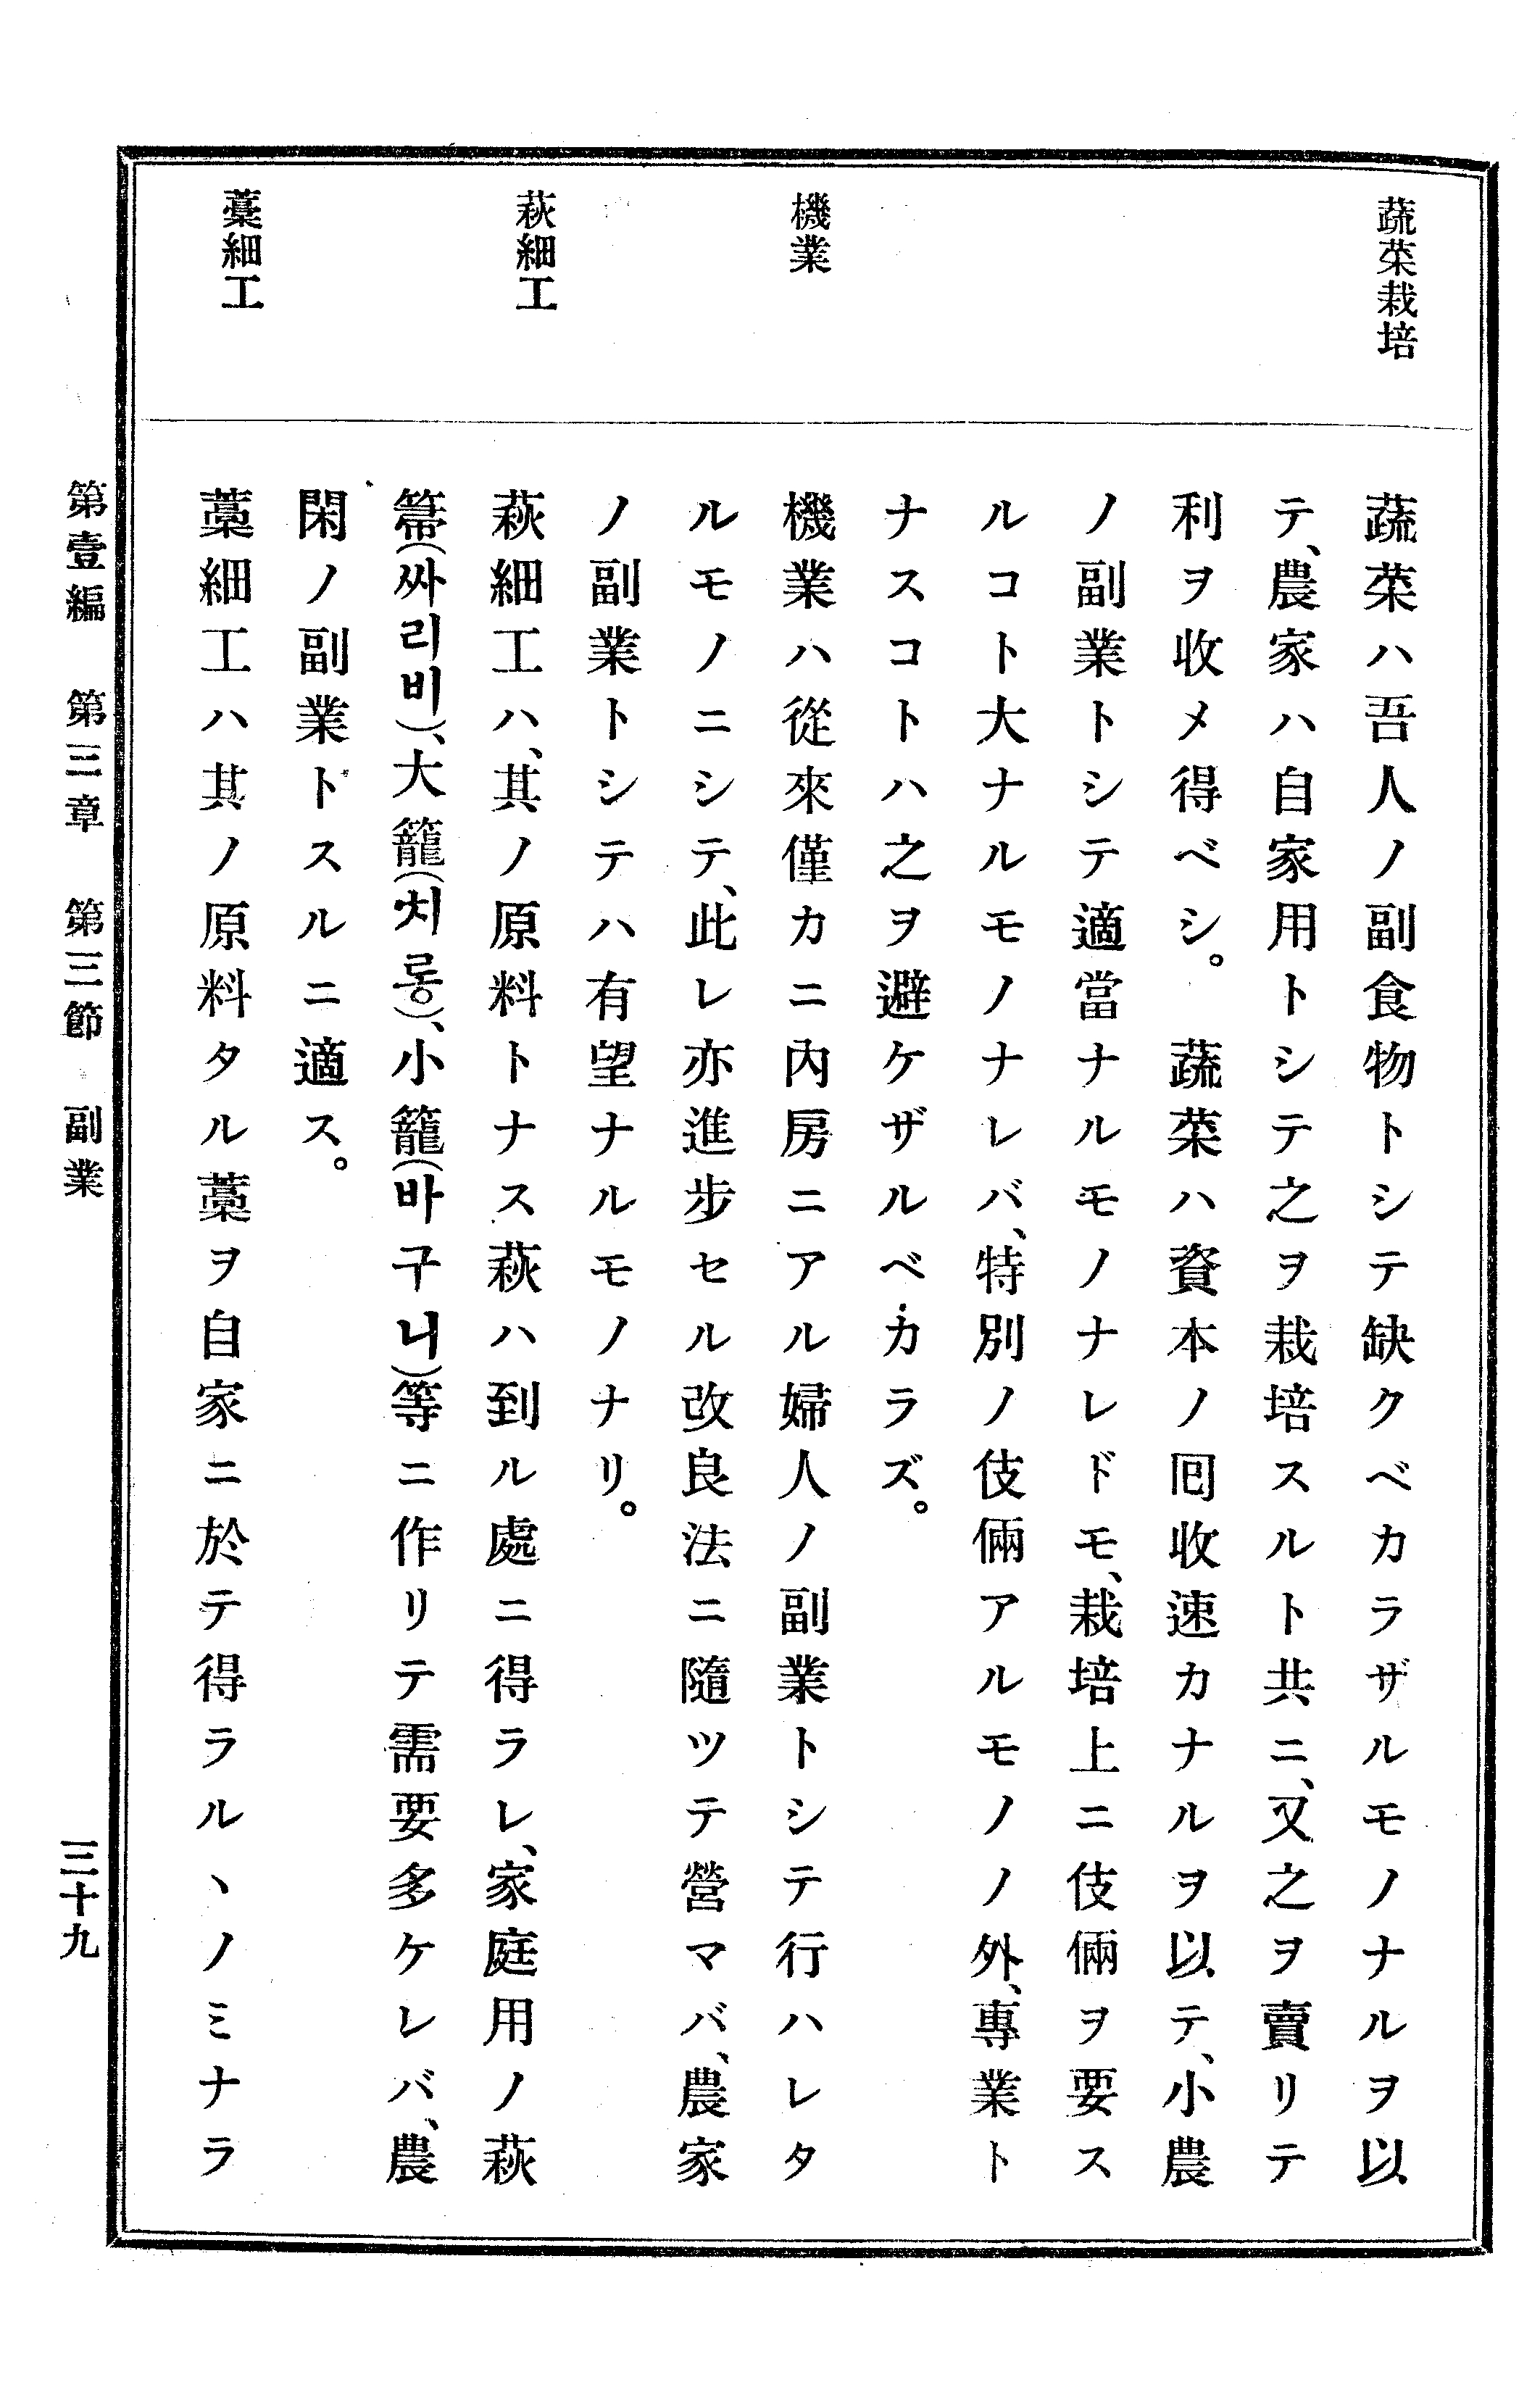 蔬菜栽培
機業
萩細工
藁細工
蔬菜ハ吾人ノ副食物トシテ缺クベカラザルモノナルヲ以
テ、農家ハ自家用トシテ之ヲ栽培スルト共ニ、又之ヲ賣リテ
利ヲ收メ得ベシ。蔬菜ハ資本ノ囘收速カナルヲ以テ、小農
ノ副業トシテ適當ナルモノナレドモ、栽培上ニ伎倆ヲ要ス
ルコト大ナルモノナレバ、特別ノ伎倆アルモノノ外、專業ト
ナスコトハ之ヲ避ケザルベカラズ。
機業ハ從來僅カニ內房ニアル婦人ノ副業トシテ行ハレタ
ルモノニシテ、此レ亦進步セル改良法ニ隨ツテ營マバ、農家
ノ副業トシテハ有望ナルモノナリ。
萩細工ハ、其ノ原料トナス萩ハ到ル處ニ得ラレ、家庭用ノ萩
箒(싸리비)、大籠(치롱)、小籠(바구니)等ニ作リテ需要多ケレバ、農
閑ノ副業トスルニ適ス。
藁細工ハ其ノ原料タル藁ヲ自家ニ於テ得ラルヽノミナラ
第壹編 第三章 第三節 副業
三十九